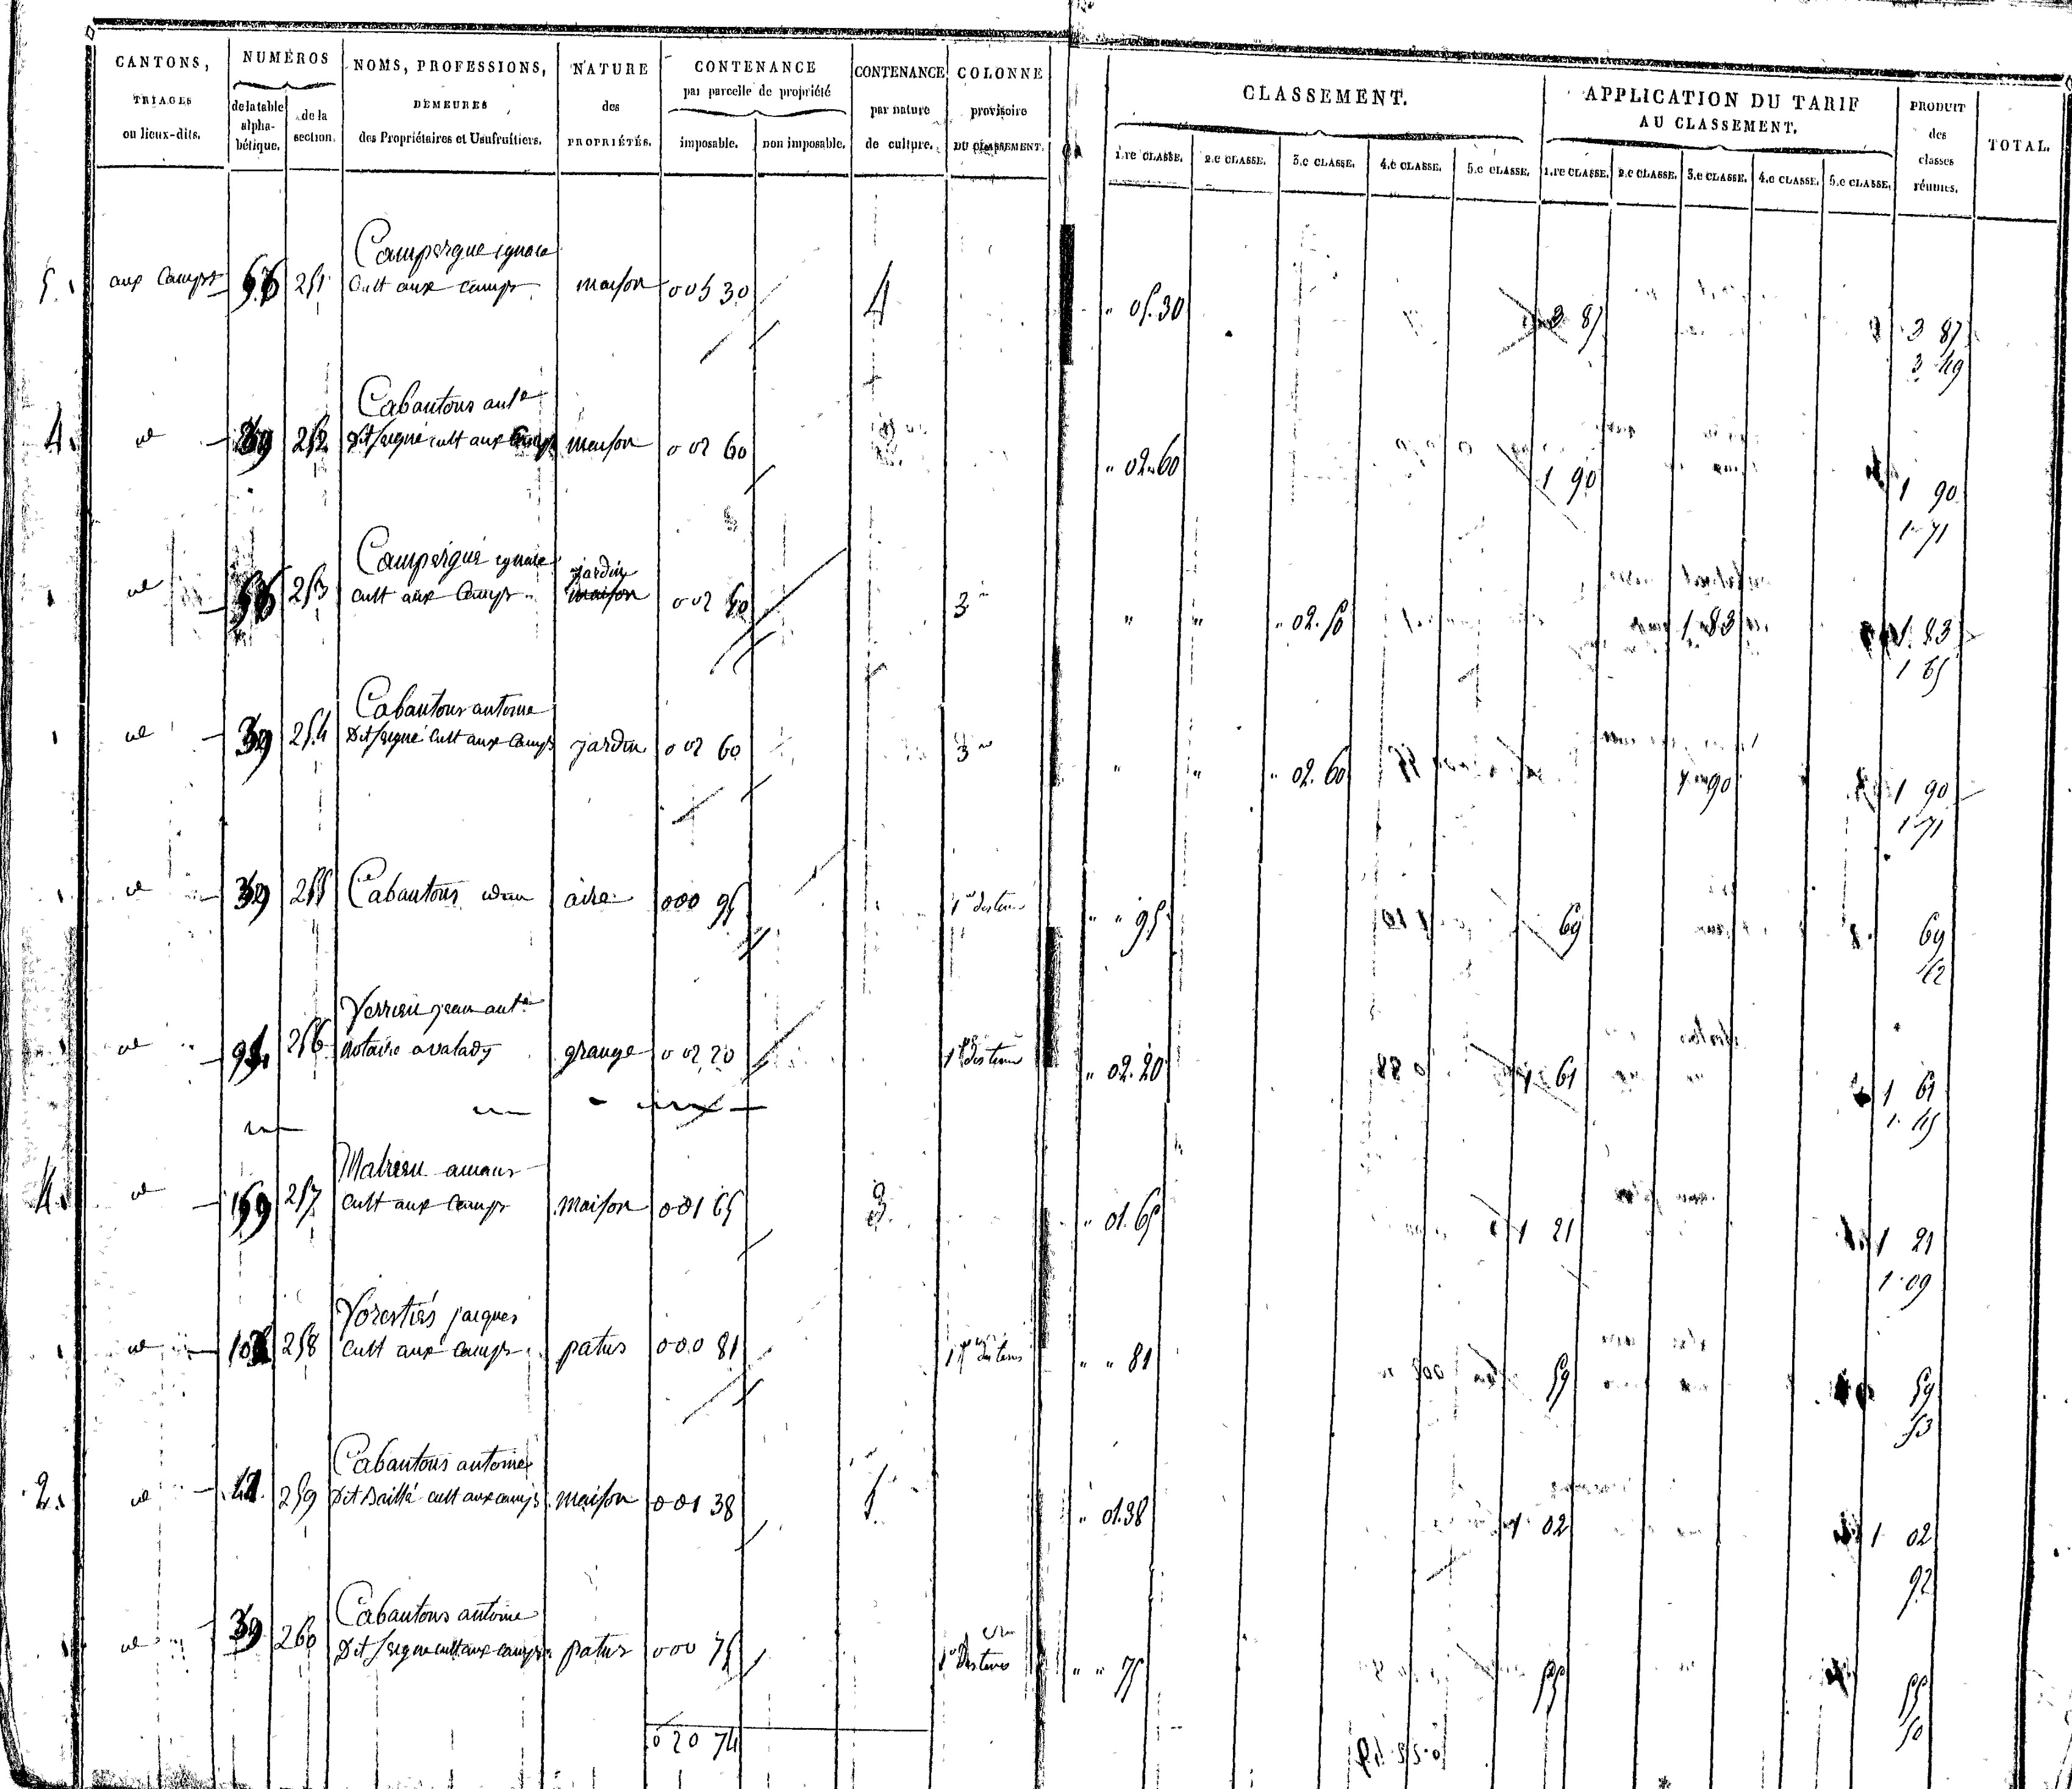 CANTONS, TRIAGES ou lieux-dits.
NUMÉROS
de la table alpha-bétique.
de la section.
NOMS, PROFESSIONS, DEMEURES des Propriétaires et Usufruitiers.
NATURE des PROPRIÉTÉS.
CONTENANCE par parcelle de propriété
imposable.
non imposable.
CONTENANCE par nature de culture.
COLONNE provisoire DU CLASSEMENT.
CLASSEMENT.
1.re CLASSE. 2.e CLASSE. 3.e CLASSE. 4.e CLASSE. 5.e CLASSE.
APPLICATION DU TARIF AU CLASSEMENT.
1.re CLASSE. 2.e CLASSE. 3.e CLASSE. 4.e CLASSE. 5.e CLASSE.
PRODUIT des classes réunies.
TOTAL.
Campergue ignace
5. aux Camps 251 Cult aux camps maison 0 05 30 4 " 05.30 3 87 3 87
3 49
Cabantous ant.e
4. id 39 252 dit cult aux Camps maison 0 02 60 " 02.60 1 90 1 90
1 71
Campergue ignace
id 253 cult aux Camps jardin maison 0 02 50 3 " " " 02.50 1 83 1 83
1 65
Cabantous antoine
id 39 254 dit cult aux Camps jardin 0 02 60 3 " " " 02.60 1 90 1 90
1 71
id 39 255 Cabantous idem aire 0 00 95 1 des terres " " 95 69 69
62
Verrieu jean ant.e
id 256 notaire a valady grange 0 02 20 1 des terres " 02.20 1 61 1 61
1 45
4. id 169 257 cult aux Camps maison 0 01 65 3. " 01.65 1 21 1 21
1 09
Forestiés jacques
id 258 cult aux camps patus 0 00 81 1 des terres " " 81 59 59
53
Cabantous antoine
2. id 259 dit cult aux camps maison 0 01 38 1. " 01.38 1 02 1 02
92
Cabantous antoine
id 39 260 dit cult aux camps patus 0 00 75 1 des terres " " 75 55 55
50
0 20 74